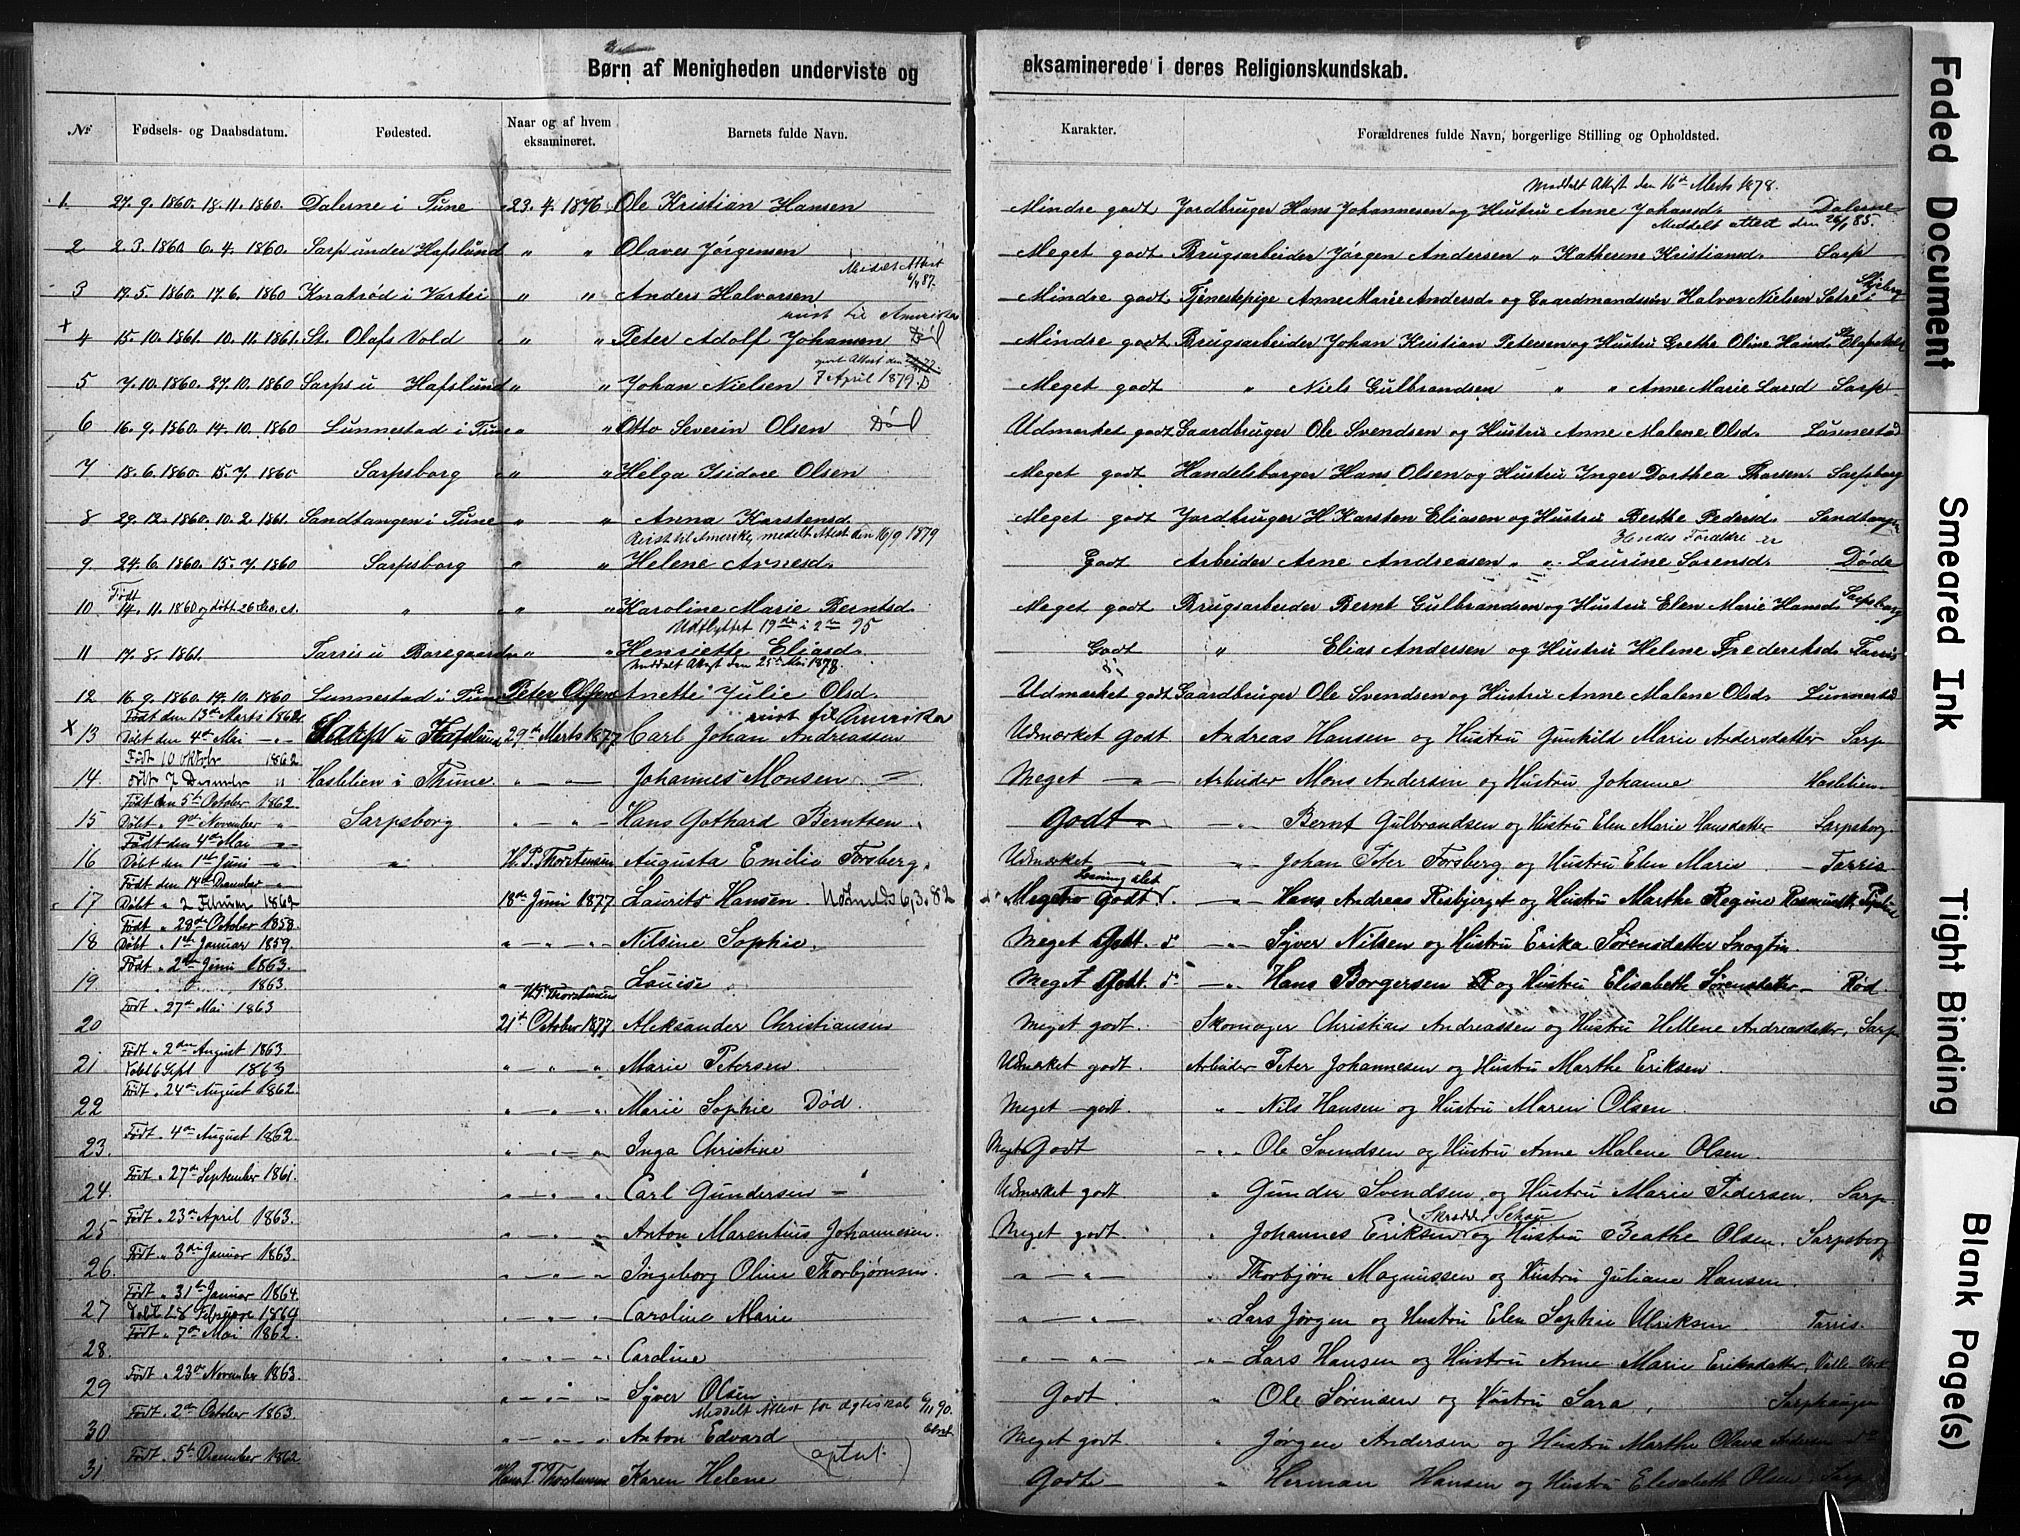 Børn af Menigheden underviste og eksaminerede i deres Religionskundskab.
№ Fødsels- og Daabsdatum. Fødested. Naar og af hvem eksamineret. Barnets fulde Navn. Karakter. Forældrenes fulde Navn, borgerlige Stilling og Opholdsted.
Meddelt Attest den 16de Merts 1878.
1. 27.9.1860. 18.11.1860. Dalerne i Tune 23.4.1876 Ole Kristian Hansen Mindre godt Jordbruger Hans Johannesen og Hustru Anne Johansd. Dalerne
Meddelt attest den 26/1 85.
2 2.3.1860 6.4.1860. Sarp under Hafslund " " Olaves Jørgensen Meget godt Brugsarbeider Jørgen Andersen " Katherine Kristiansd. Sarp
Meddelt Attest 6/4 87.
3 17.5.1860. 17.6.1860 Knatrød i Vartei " " Anders Halvorsen Mindre godt Tjenestepige Anne Marie Andersd. og Gaardmandssøn Halvor Nielsen Sætre i Skjeberg
reist til Amerika
× 4 15.10.1861. 10.11.1861. St. Olafs Vold " " Peter Adolf Johansen Død Mindre godt Brugsarbeider Johan Kristian Petersen og Hustru Grethe Oline Hansd. St. Olafsvold
givet Attest den
5 7.10.1860. 27.10.1860 Sarp u Hafslund " " Johan Nielsen 7 April 1879. D Meget godt " Niels Gulbrandsen " " Anne Marie Larsd Sarp
6 16.9.1860. 14.10.1860 Lunnestad i Tune " " Otto Severin Olsen Død Udmerket godt Gaardbruger Ole Svendsen og Hustru Anne Malene Olsd. Lunnestad
7 18.6.1860. 15.7.1860 Sarpsborg " " Helga Isidore Olsen Meget godt Handelsborger Hans Olsen og Hustru Inger Dorthea Thorsen. Sarpsborg
8 29.12.1860. 10.2.1861. Sandtangen i Tune " " Anna Karstensd. Meget godt Jordbruger H. Karsten Eliasen og Hustru Berthe Pedersd. Sandtangen
Reist til Amerika, medelt Attest den 16/9 1879 Hendes Foreldre er
9 24.6.1860. 15.7.1860 Sarpsborg " " Helene Arnesd. Godt Arbeider Arne Andreasen " " Laurine Sørensd. Døde
Født
10 14.11.1860 og døbt 26 Dec. " " " Karoline Marie Berntsd. Meget godt Brugsarbeider Bernt Gulbrandsen og Hustru Elen Marie Hansd. Sarpsborg
Udflyttet 19de i 2den 95
11 17.8.1861. Tarris u Boregaard " " Henriette Eliasd. Godt " Elias Andersen og Hustru Helene Frederiksd. Tarris
Meddelt Attest den 25de Mai 1878.
12 16.9.1860 14.10.1860 Lunnestad i Tune Peter Olsen Anette Julie Olsd. Udmerket godt Gaardbruger Ole Svendsen og Hustru Anne Malene Olsd. Lunnestad
Født den 13de Marts 1862. reist til Amerika
× 13 Døbt den 4de Mai — " — Sarp u Hafslund 29de Merts 1877 Carl Johan Andreassen Udmærket Godt Andreas Hansen og Hustru Gunhild Marie Andersdatter Sarp
Født 10 Oktober 1862
14. døbt 7 December " Haslelien i Thune. " — Johannes Monsen. Meget — " — Arbeider Mons Andersen og Hustru Johanne Haslelien.
Født den 5te October 1862.
15 Døbt " 9de November " Sarpsborg " — " — Hans Gothard Berntsen. Godt — " — Bernt Gulbrandsen og Hustru Elen Marie Hansdatter Sarpsborg.
Født den 4de Mai — " —
16 Døbt den 1ste Juni — " — " H. P. Thorstensen Augusta Emilie Forsberg. Udmærket — " — Johan Peter Forsberg og Hustru Elen Marie — Tarris
Født den 14de December — " —
17 Døbt " 2 Februar 1862 18de Juni 1877 Laurits Hansen. Udmeldt 6,3.82 Meget Godt — " — Hans Andreas Risbjerget og Hustru Marthe Regine
Født " 28de October 1858.
18 Døbt " 1ste Januar 1859. " — " — " Nilsine Sophie. Meget Godt. — " — Syver Nilsen og Hustru Erika Sørensdatter
Født " 2den Juni 1863.
19 1863. " Louise Meget Godt. — " — Hans Borgersen og Hustru Elisabeth Sørensdatter Rød.
H. P. Thorstensen
Født " 27de Mai 1863
20 21de October 1877 Aleksander Christiansen Meget godt. Skomager Christian Andreassen og Hustru Hellene Andreasdatter, Sarp
Født " 2den August 1863.
21. Døbt 6 Sept 1863 " — " " Marie Petersen. Udmærket godt. Arbeider Peter Johannesen og Hustru Marthe Eriksen.
Født " 24de August 1862.
22 " — " — " Marie Sophie Død. Meget godt. " Nils Hansen og Hustru Maren Olsen.
Født " 4de August 1862.
23. " — " — " Inga Christine Meget Godt — " " Ole Svendsen og Hustru Anne Malene Olsen.
Født " 27de September 1861.
24. " — " — " Carl Gundersen — " Udmærket godt " Gunder Svendsen og Hustru Marie Pedersen. Sarp
Født " 23de April 1863. Skrædder
25 " — " — " Anton Marentius Johannesen. Meget godt. " Johannes Eriksen og Hustru Beathe Olsen. Sarpsborg
Født " 3de Januar 1863.
26. " — " — " Ingeborg Oline Thorbjørnsen. " — " — " Thorbjørn Magnussen og Hustru Juliane Hansen.
Født " 31te Januar 1864.
27 Døbt 28 Februare 1864 " — " — " Caroline Marie " — " — " Lars Jørgen og Hustru Elen Sophie Ulriksen Tarris.
Født " 7de Mai 1862.
28. " — " — " Caroline " — " — " Lars Hansen og Hustru Anne Marie Eriksdatter,
Født " 23de November 1863.
29 " — " — " Sjver Olsen Godt. " Ole Sørensen og Hustru Sara, Sarphaugen
Født " 2den October 1863. Meddelt Attest for ægteskab 6/11 90.
30 " — " — " Anton Edvard Meget godt. " Jørgen Andersen og Hustru Marthe Olava Andersen
Født " 5te December 1862 (optat.)
31 Hans P. Thorstensen Karen Helene Godt " Herman Hansen og Hustru Elisabeth Olsen, Sarp
Faded Document
Smeared Ink
Tight Binding
Blank Page(s)